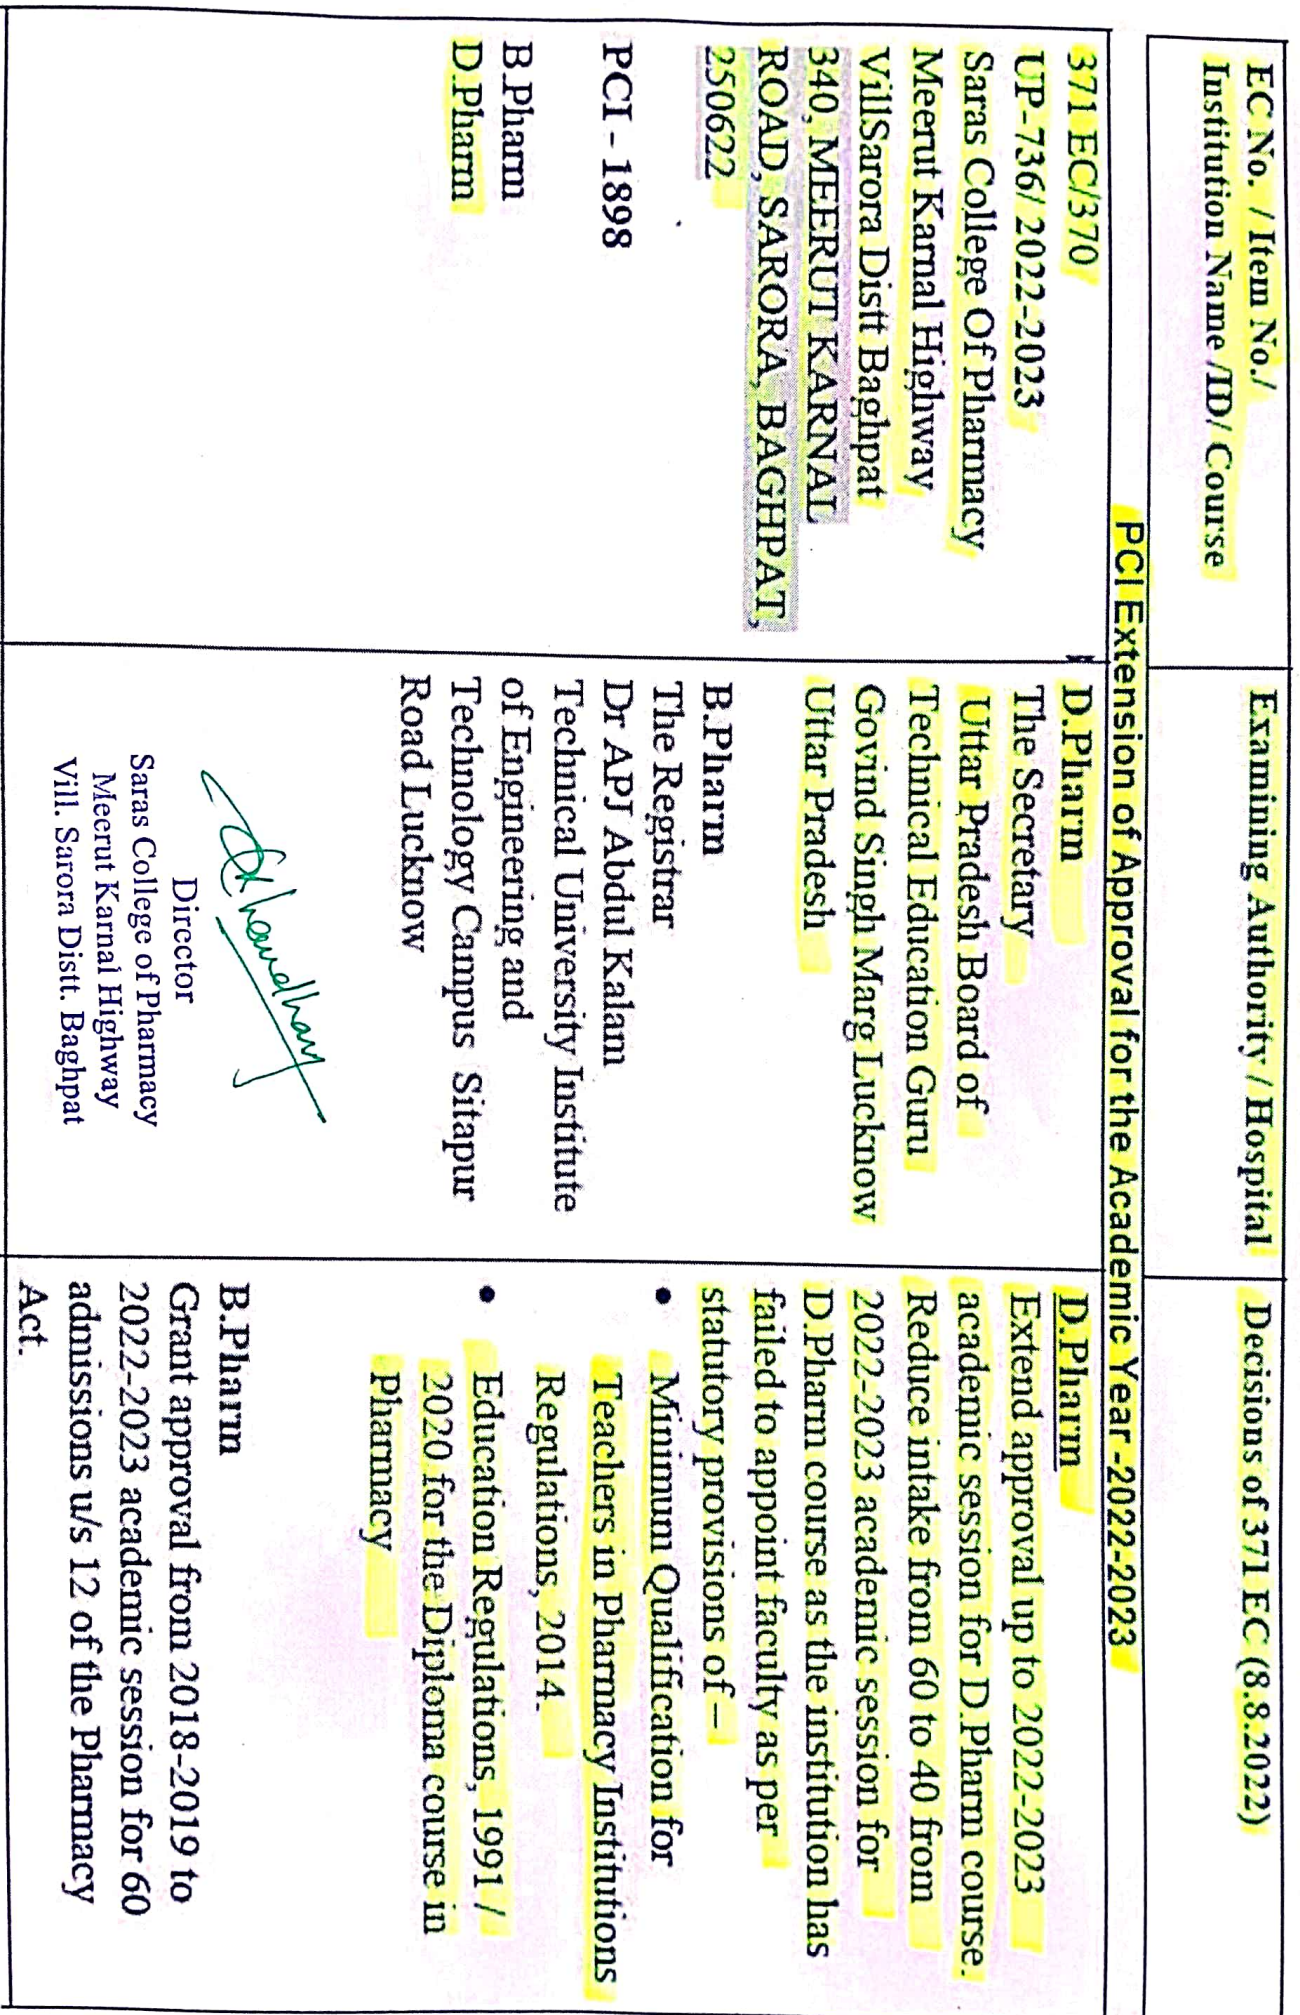 EC No. / Item No./
Institution Name /ID/ Course
Examining Authority / Hospital
Decisions of 371 EC (8.8.2022)
PCI Extension of Approval for the Academic Year -2022-2023
371 EC/370
UP-736/ 2022-2023
Saras College Of Pharmacy
Meerut Karnal Highway
VillSarora Distt Baghpat
340, MEERUT KARNAL
ROAD, SARORA, BAGHPAT,
250622
PCI - 1898
B.Pharm
D.Pharm
D.Pharm
The Secretary
Uttar Pradesh Board of
Technical Education Guru
Govind Singh Marg Lucknow
Uttar Pradesh
B.Pharm
The Registrar
Dr APJ Abdul Kalam
Technical University Institute
of Engineering and
Technology Campus Sitapur
Road Lucknow
Director
Saras College of Pharmacy
Meerut Karnal Highway
Vill. Sarora Distt. Baghpat
D.Pharm
Extend approval up to 2022-2023
academic session for D.Pharm course.
Reduce intake from 60 to 40 from
2022-2023 academic session for
D.Pharm course as the institution has
failed to appoint faculty as per
statutory provisions of –
• Minimum Qualification for
Teachers in Pharmacy Institutions
Regulations, 2014.
• Education Regulations, 1991 /
2020 for the Diploma course in
Pharmacy
B.Pharm
Grant approval from 2018-2019 to
2022-2023 academic session for 60
admissions u/s 12 of the Pharmacy
Act.